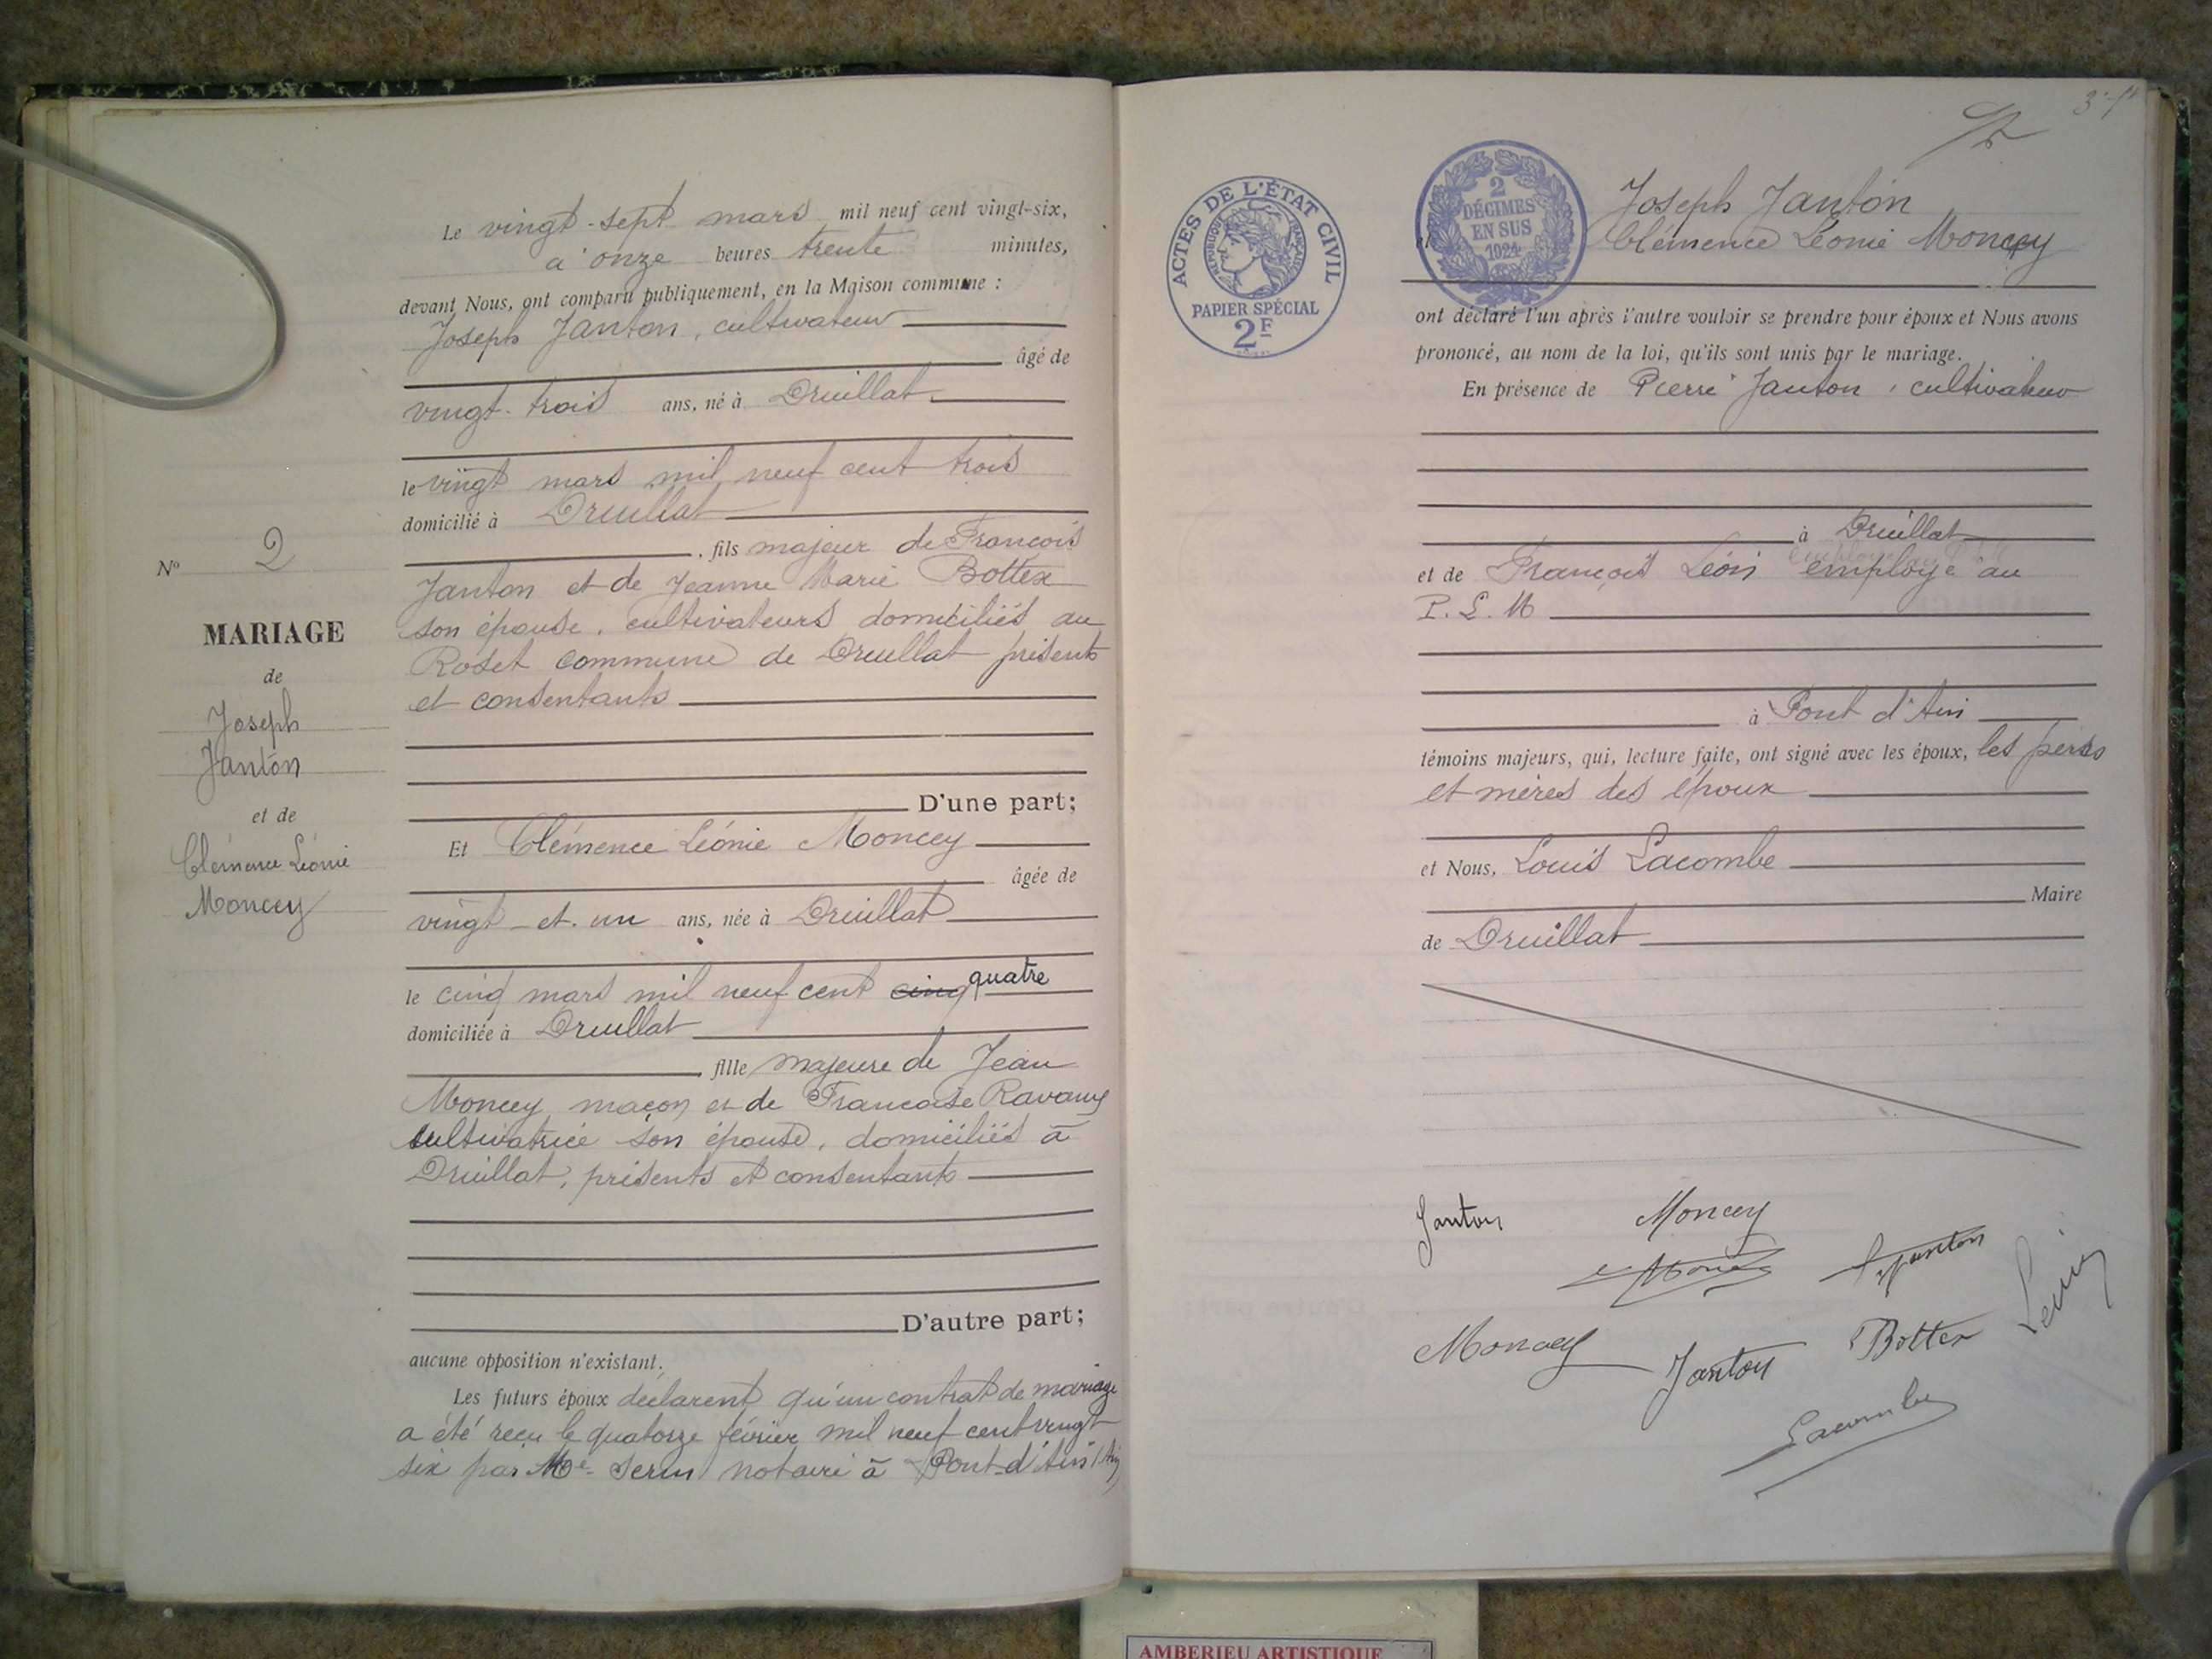 Le vingt-sept mars mil neuf cent vingt-six,
à onze heures trente minutes,
devant Nous, ont comparu publiquement, en la Maison commune :
Joseph Janton, cultivateur
âgé de
vingt-trois ans, né à Druillat
le vingt mars mil neuf cent trois
domicilié à Druillat
, fils majeur de François
Janton et de Jeanne Marie Bottex
son épouse, cultivateurs domiciliés au
Roset commune de Druillat présents
et consentants
D'une part;
Nº 2
MARIAGE
de
Joseph
Janton
et de
Clémence Léonie
Moncey
Et Clémence Léonie Moncey
âgée de
vingt-et-un ans, née à Druillat
le cinq mars mil neuf cent cinq quatre
domiciliée à Druillat
, fille majeure de Jean
Moncey maçon et de Francoise
cultivatrice son épouse, domiciliés à
Druillat, présents et consentants
D'autre part;
aucune opposition n'existant.
Les futurs époux déclarent qu'un contrat de mariage
a été reçu le quatorze février mil neuf cent vingt
six par Me Serin notaire à Pont-d'Ain (Ain)
ACTES DE L'ÉTAT CIVIL
RÉPUBLIQUE FRANÇAISE
PAPIER SPÉCIAL
2F
2
DÉCIMES
EN SUS
1924
Joseph Janton
et Clémence Léonie Moncey
ont déclaré l'un après l'autre vouloir se prendre pour époux et Nous avons
prononcé, au nom de la loi, qu'ils sont unis par le mariage.
En présence de Pierre Janton, cultivateur
à Druillat
et de François Léon employé au
P.L.M
à Pont d'Ain
témoins majeurs, qui, lecture faite, ont signé avec les époux, les pères
et mères des époux
et Nous, Louis Lacombe
Maire
de Druillat
Janton Moncey
Janton
Moncey Janton Bottex
Lacombe
AMBERIEU ARTISTIQUE